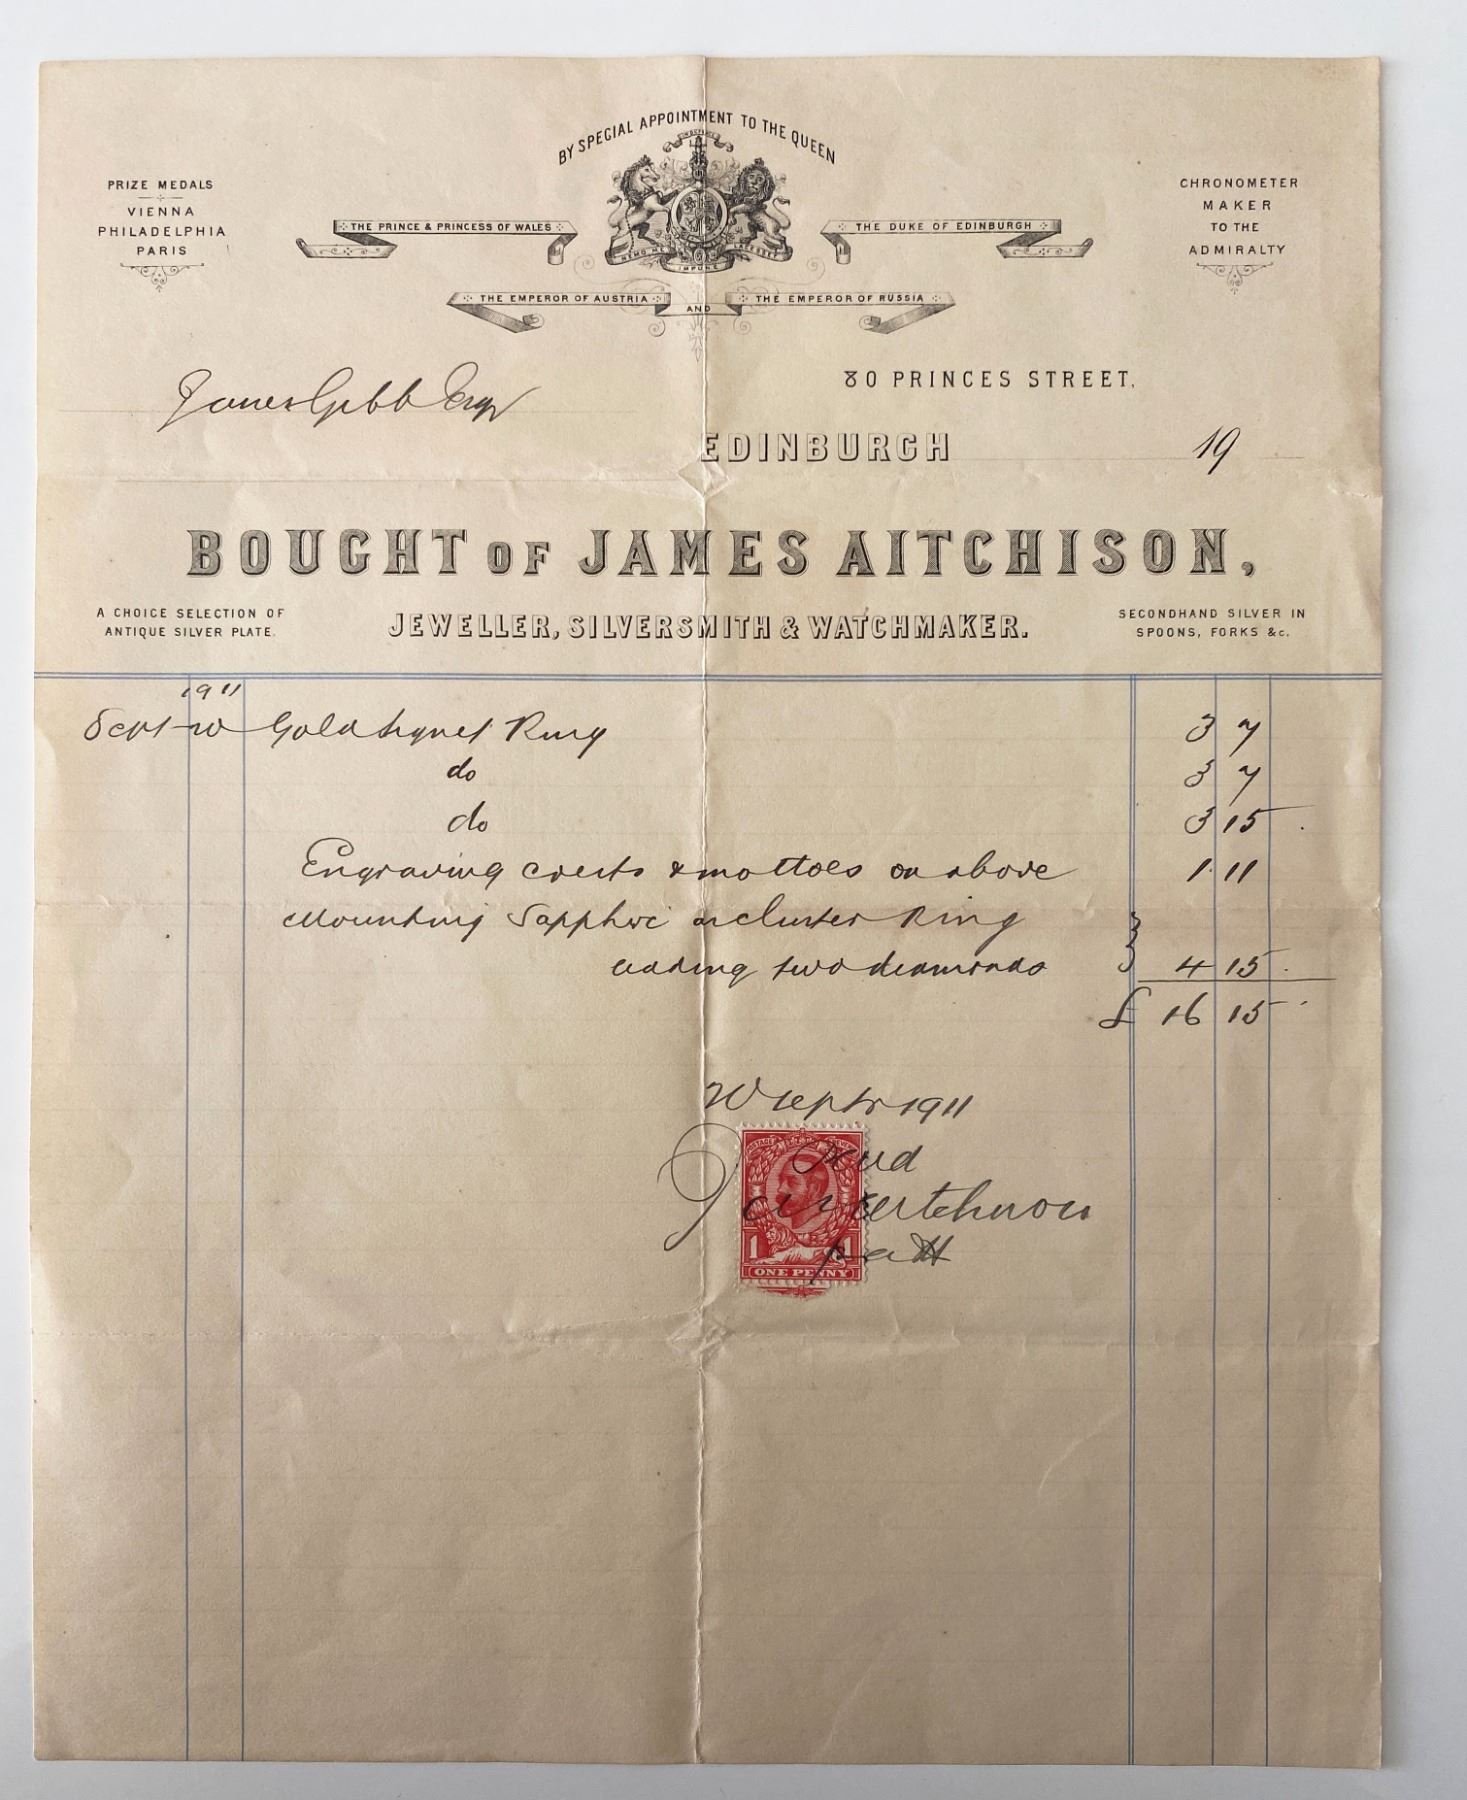 BY SPECIAL APPOINTMENT TO THE QUEEN
PRIZE MEDALS
VIENNA
PHILADELPHIA
PARIS
CHRONOMETER
MAKER
TO THE
ADMIRALTY
THE PRINCE & PRINCESS OF WALES
THE DUKE OF EDINBURGH
NEMO ME IMPUNE LACESSIT
THE EMPEROR OF AUSTRIA AND THE EMPEROR OF RUSSIA
James Gibb Esqr
80 PRINCES STREET,
EDINBURGH 19
BOUGHT OF JAMES AITCHISON,
A CHOICE SELECTION OF
ANTIQUE SILVER PLATE.
JEWELLER, SILVERSMITH & WATCHMAKER.
SECONDHAND SILVER IN
SPOONS, FORKS &c.
1911
Sept 20 Gold Signet Ring 3 7
do 3 7
do 3 15
Engraving crests & mottoes on above 1 11
Mounting Sapphire in cluster Ring
adding two diamonds 4 15
£ 16 15
20 Septr 1911
POSTAGE REVENUE
Jas Aitchison
1 1
ONE PENNY